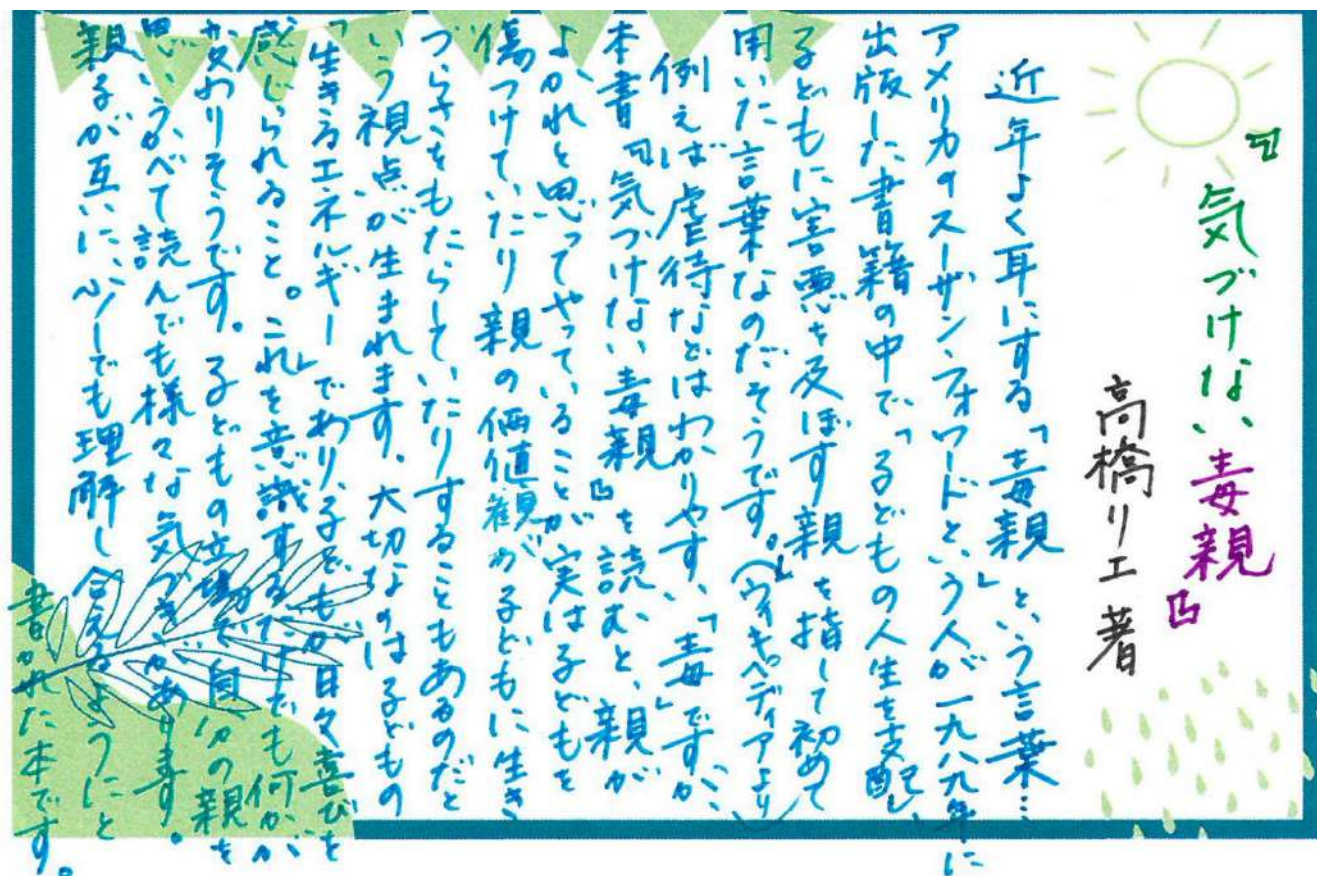 『気づけない毒親』
高橋リエ 著
近年よく耳にする「毒親」という言葉…
アメリカのスーザン・フォワードという人が一九八九年に
出版した書籍の中で「子どもの人生を支配し、
子どもに害悪を及ぼす親」を指して初めて
用いた言葉なのだそうです。(ウィキペディアより)
例えば虐待などはわかりやすい「毒」ですが、
本書『気づけない毒親』を読むと、親が
よかれと思ってやっていることが実は子どもを
傷つけていたり親の価値観が子どもに生き
づらさをもたらしていたりすることもあるのだと
いう視点が生まれます。大切なのは子どもの
「生きるエネルギー」であり、子どもが日々喜びを
感じられること。これを意識するだけでも何かが
変わりそうです。子どもの立場で自分の親を
思いうかべて読んでも様々な気づきがあります。
親子が互いに、少しでも理解し合えるようにと
書かれた本です。